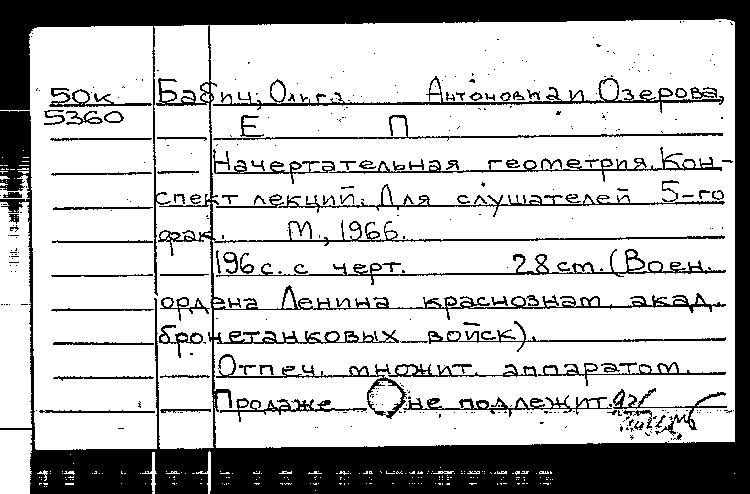 50к Бабич, Ольга Антоновна и Озерова,
5360 Е П
Начертательная геометрия. Кон-
спект лекций. Для слушателей 5-го
фак. М., 1966.
196 с. с черт. 28 cm. (Воен.
ордена Ленина краснознам. акад.
бронетанковых войск).
Отпеч. множит. аппаратом.
Продаже не подлежит.